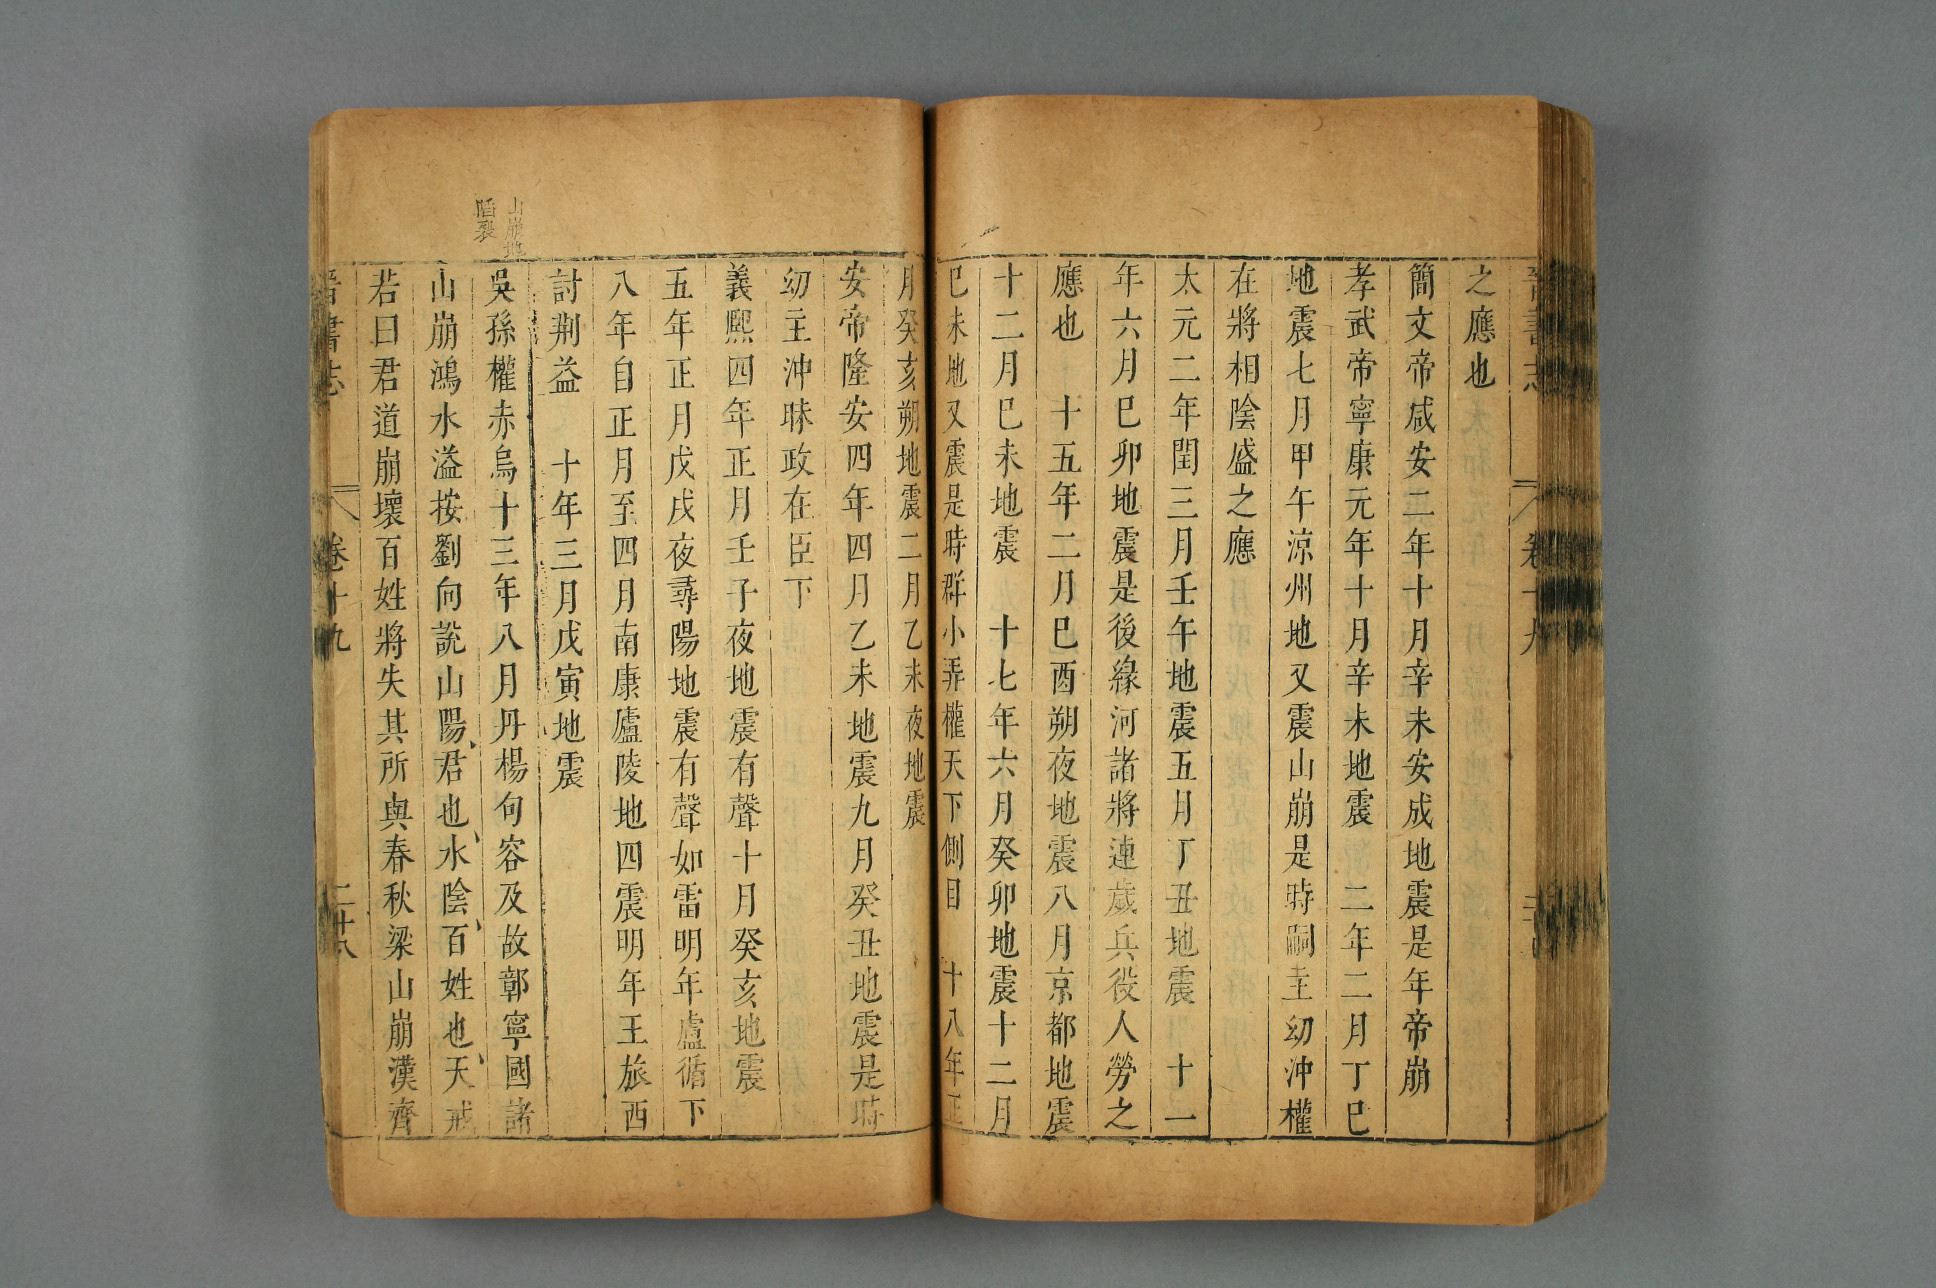 之應也
簡文帝咸安二年十月辛未安成地震是年帝崩
孝武帝寧康元年十月辛未地震 二年二月丁巳
地震七月甲午涼州地又震山崩是時嗣主幼沖權
在將相陰盛之應
太元二年閏三月壬午地震五月丁丑地震 十一
年六月巳卯地震是後緣河諸將連歲兵役人勞之
應也 十五年二月巳酉朔夜地震八月京都地震
十二月巳未地震 十七年六月癸卯地震十二月
巳未地又震是時群小弄權天下側目 十八年正
月癸亥朔地震二月乙未夜地震
安帝隆安四年四月乙未地震九月癸丑地震是時
幼主沖昧政在臣下
義熙四年正月壬子夜地震有聲十月癸亥地震
五年正月戊戌夜尋陽地震有聲如雷明年盧循下
八年自正月至四月南康廬陵地四震明年王旅西
討荆益 十年三月戊寅地震
山崩地
陷裂
吳孫權赤烏十三年八月丹楊句容及故鄣寧國諸
山崩鴻水溢按劉向說山陽君也水陰百姓也天戒
若曰君道崩壞百姓將失其所與春秋梁山崩漢齊
晉書志 卷十九 二十八